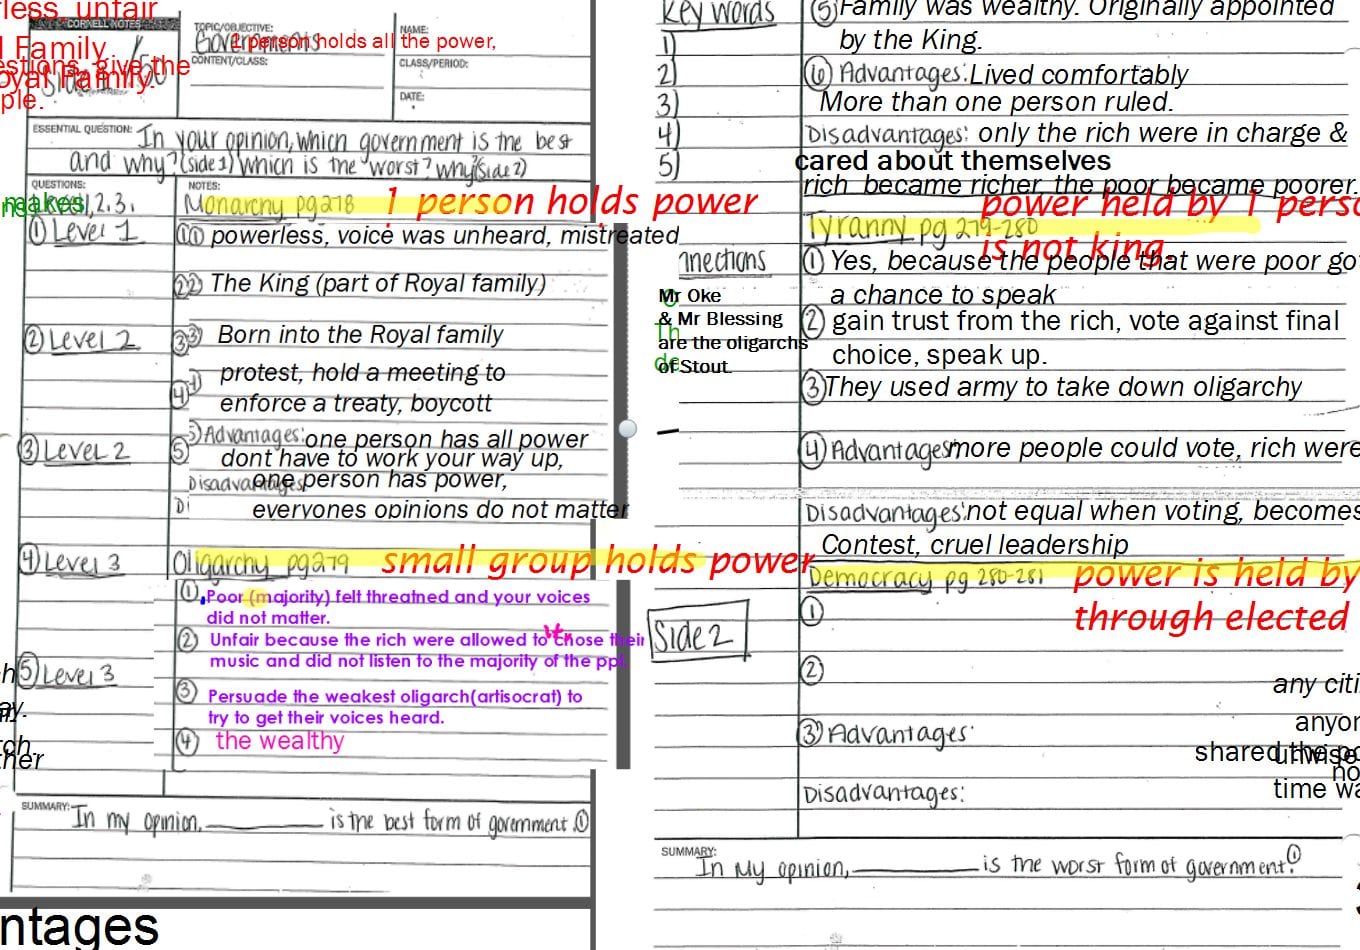 less, unfair
CORNELL NOTES
TOPIC/OBJECTIVE:
Governments
1 person holds all the power,
NAME:
l Family
estions, give the
oyal Family.
ple.
Side 1
CONTENT/CLASS:
CLASS/PERIOD:
DATE:
ESSENTIAL QUESTION: In your opinion, which government is the best
and why? (side 1) which is the worst? why? (Side 2)
QUESTIONS:
NOTES:
makes
Level 1, 2, 3.
Monarchy pg 278 1 person holds power
① Level 1
① powerless, voice was unheard, mistreated
② The King (part of Royal family)
② Level 2
③ Born into the Royal family
④ protest, hold a meeting to
enforce a treaty, boycott
③ Level 2
⑤ Advantages: one person has all power
dont have to work your way up,
Disadvantages one person has power,
Di
everyones opinions do not matter
④ Level 3
Oligarchy pg 279 small group holds power
① Poor (majority) felt threatned and your voices
did not matter.
② Unfair because the rich were allowed to chose their
music and did not listen to the majority of the ppl.
⑤ Level 3
③ Persuade the weakest oligarch(artisocrat) to
try to get their voices heard.
④ the wealthy
ay.
rch.
ther
SUMMARY: In my opinion, ________ is the best form of government. ①
ntages
Key Words
1)
2)
3)
4)
5)
⑤ Family was wealthy. Originally appointed
by the King.
⑥ Advantages: Lived comfortably
More than one person ruled.
Disadvantages: only the rich were in charge &
cared about themselves
rich became richer, the poor became poorer.
power held by 1 perso
Tyranny pg 279-280
is not king.
nnections
① Yes, because the people that were poor go
a chance to speak
Mr Oke
& Mr Blessing
are the oligarchs
of Stout.
② gain trust from the rich, vote against final
choice, speak up.
③ They used army to take down oligarchy
④ Advantages more people could vote, rich were
Disadvantages: not equal when voting, becomes
Contest, cruel leadership
Democracy pg 280-281 power is held by
through elected
①
Side 2
②
any citi
anyon
③ Advantages:
shared the po
unwise
no
time wa
Disadvantages:
SUMMARY: In My opinion, ________ is the worst form of government. ①